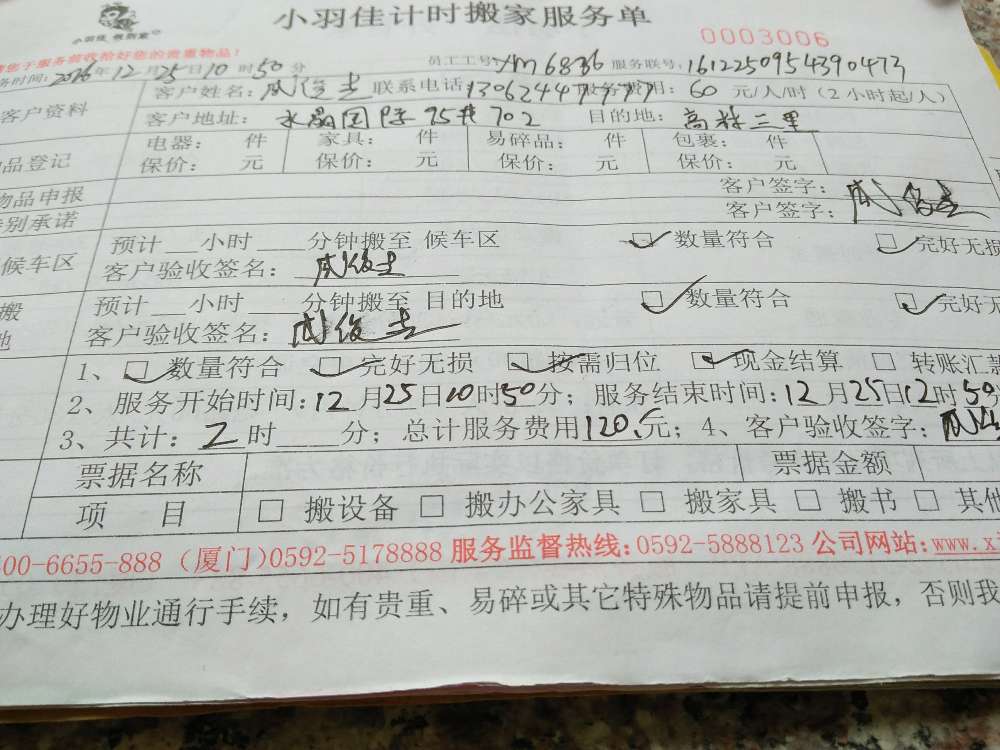 小羽佳计时搬家服务单
小羽佳
0003006
您于服务验收拾好您的贵重物品!
务时间:2016年12月25日10时50分 员工工号:YM6836 服务联号:161225095439 0473
客户资料 客户姓名: 联系电话:13062447777 服务费用:60元/人/时(2小时起/人)
客户地址:水晶国际75#702 目的地:高林三里
品登记 电器: 件 家具: 件 易碎品: 件 包裹: 件
保价: 元 保价: 元 保价: 元 保价: 元
物品申报 客户签字:
别承诺 客户签字:
候车区 预计__小时____分钟搬至 候车区 □数量符合 □完好无损
客户验收签名:
搬 预计__小时____分钟搬至 目的地 □数量符合 □完好无
地 客户验收签名:
1、□数量符合 □完好无损 □按需归位 □现金结算 □ 转账汇款
2、服务开始时间:12月25日10时50分;服务结束时间:12月25日12时50
3、共计:2时____分;总计服务费用120元;4、客户验收签字:
票据名称 票据金额
项 目 □ 搬设备 □ 搬办公家具 □ 搬家具 □ 搬书 □ 其他
00-6655-888 (厦门)0592-5178888 服务监督热线:0592-5888123 公司网站:www.xi
办理好物业通行手续,如有贵重、易碎或其它特殊物品请提前申报,否则我